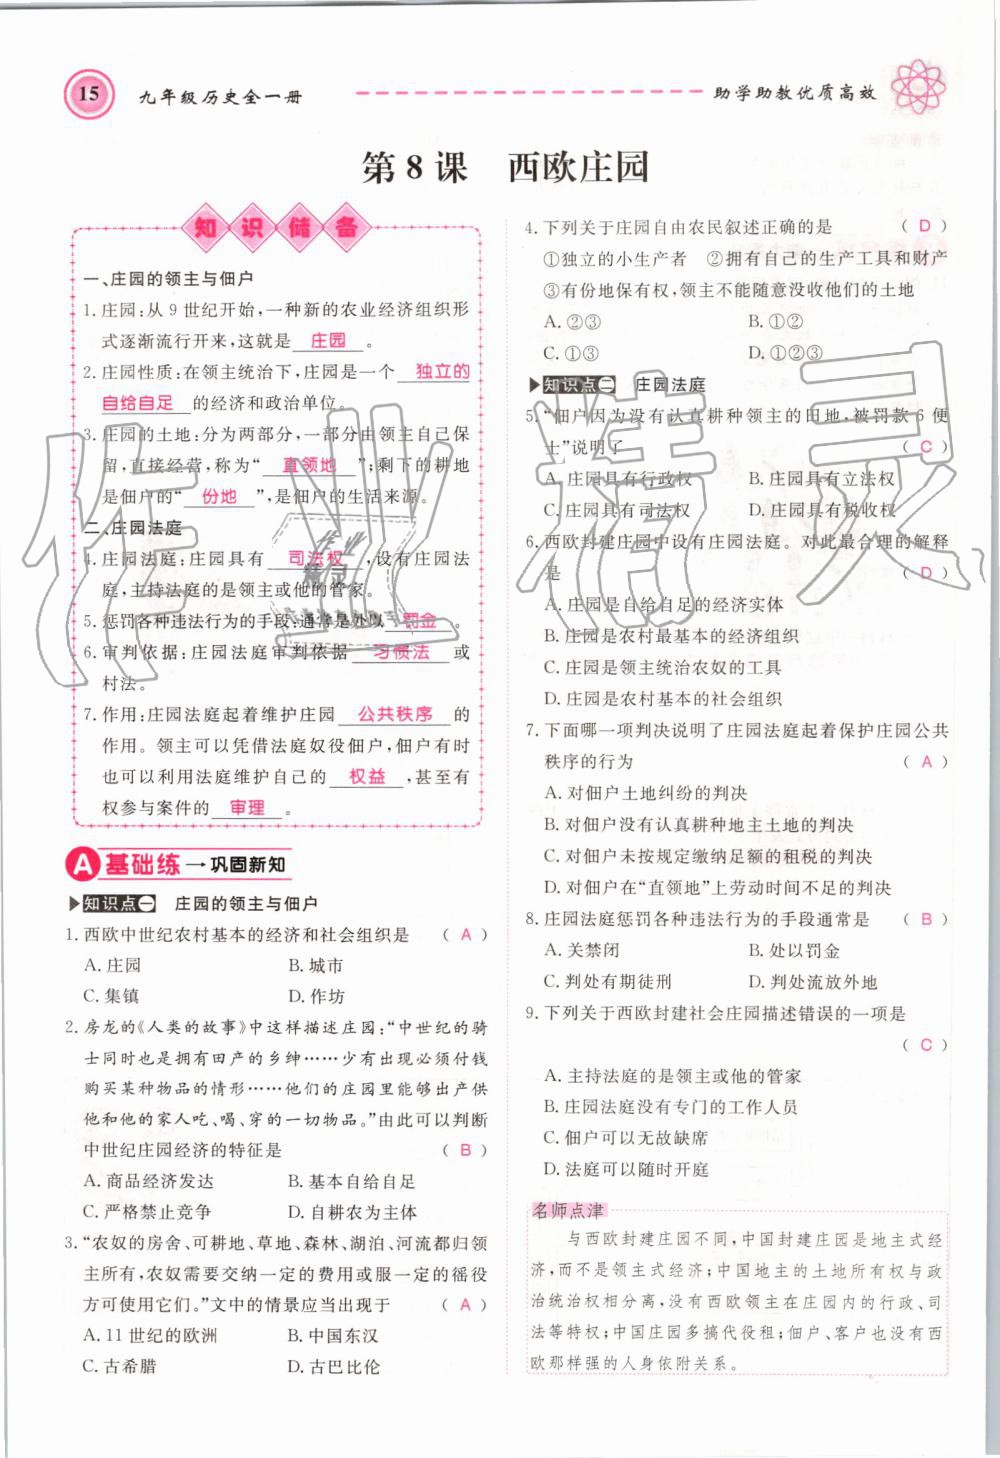 15
九年级历史全一册
助学助教优质高效
第8课 西欧庄园
知识储备
一、庄园的领主与佃户
1. 庄园:从9世纪开始,一种新的农业经济组织形
式逐渐流行开来,这就是 庄园 。
2. 庄园性质:在领主统治下,庄园是一个 独立的
自给自足 的经济和政治单位。
3. 庄园的土地:分为两部分,一部分由领主自己保
留,直接经营,称为“ 直领地 ”;剩下的耕地
是佃户的“ 份地 ”,是佃户的生活来源。
二、庄园法庭
4. 庄园法庭:庄园具有 司法权 ,设有庄园法
庭,主持法庭的是领主或他的管家。
5. 惩罚各种违法行为的手段:通常是处以 罚金 。
6. 审判依据:庄园法庭审判依据 习惯法 或
村法。
7. 作用:庄园法庭起着维护庄园 公共秩序 的
作用。领主可以凭借法庭奴役佃户,佃户有时
也可以利用法庭维护自己的 权益 ,甚至有
权参与案件的 审理 。
A 基础练→巩固新知
知识点一 庄园的领主与佃户
1. 西欧中世纪农村基本的经济和社会组织是 ( A )
A. 庄园 B. 城市
C. 集镇 D. 作坊
2. 房龙的《人类的故事》中这样描述庄园:“中世纪的骑
士同时也是拥有田产的乡绅……少有出现必须付钱
购买某种物品的情形……他们的庄园里能够出产供
他和他的家人吃、喝、穿的一切物品。”由此可以判断
中世纪庄园经济的特征是 ( B )
A. 商品经济发达 B. 基本自给自足
C. 严格禁止竞争 D. 自耕农为主体
3. “农奴的房舍、可耕地、草地、森林、湖泊、河流都归领
主所有,农奴需要交纳一定的费用或服一定的徭役
方可使用它们。”文中的情景应当出现于 ( A )
A. 11世纪的欧洲 B. 中国东汉
C. 古希腊 D. 古巴比伦
4. 下列关于庄园自由农民叙述正确的是 ( D )
①独立的小生产者 ②拥有自己的生产工具和财产
③有份地保有权,领主不能随意没收他们的土地
A. ②③ B. ①②
C. ①③ D. ①②③
知识点二 庄园法庭
5. “佃户因为没有认真耕种领主的田地,被罚款6便
士”说明了 ( C )
A. 庄园具有行政权 B. 庄园具有立法权
C. 庄园具有司法权 D. 庄园具有税收权
6. 西欧封建庄园中设有庄园法庭。对此最合理的解释
是 ( D )
A. 庄园是自给自足的经济实体
B. 庄园是农村最基本的经济组织
C. 庄园是领主统治农奴的工具
D. 庄园是农村基本的社会组织
7. 下面哪一项判决说明了庄园法庭起着保护庄园公共
秩序的行为 ( A )
A. 对佃户土地纠纷的判决
B. 对佃户没有认真耕种地主土地的判决
C. 对佃户未按规定缴纳足额的租税的判决
D. 对佃户在“直领地”上劳动时间不足的判决
8. 庄园法庭惩罚各种违法行为的手段通常是 ( B )
A. 关禁闭 B. 处以罚金
C. 判处有期徒刑 D. 判处流放外地
9. 下列关于西欧封建社会庄园描述错误的一项是
( C )
A. 主持法庭的是领主或他的管家
B. 庄园法庭没有专门的工作人员
C. 佃户可以无故缺席
D. 法庭可以随时开庭
名师点津
与西欧封建庄园不同,中国封建庄园是地主式经
济,而不是领主式经济;中国地主的土地所有权与政
治统治权相分离,没有西欧领主在庄园内的行政、司
法等特权;中国庄园多搞代役租;佃户、客户也没有西
欧那样强的人身依附关系。
作业精灵